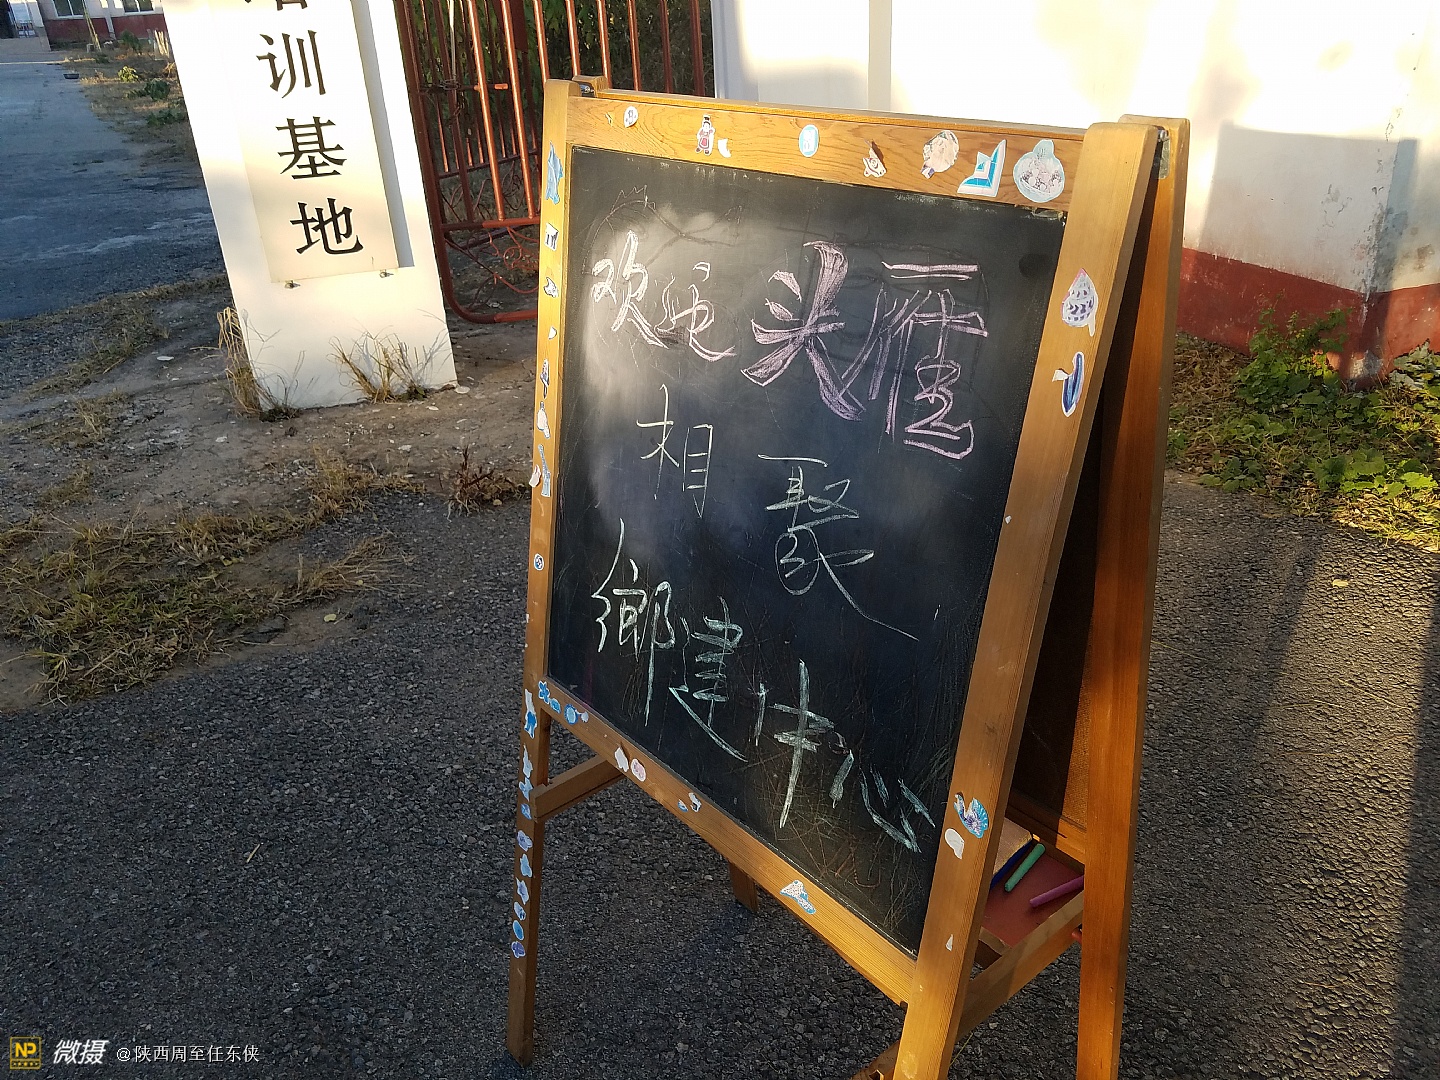 培训基地
欢迎头雁
相聚
鄉建中心
NP 微摄 @陕西周至任东侠